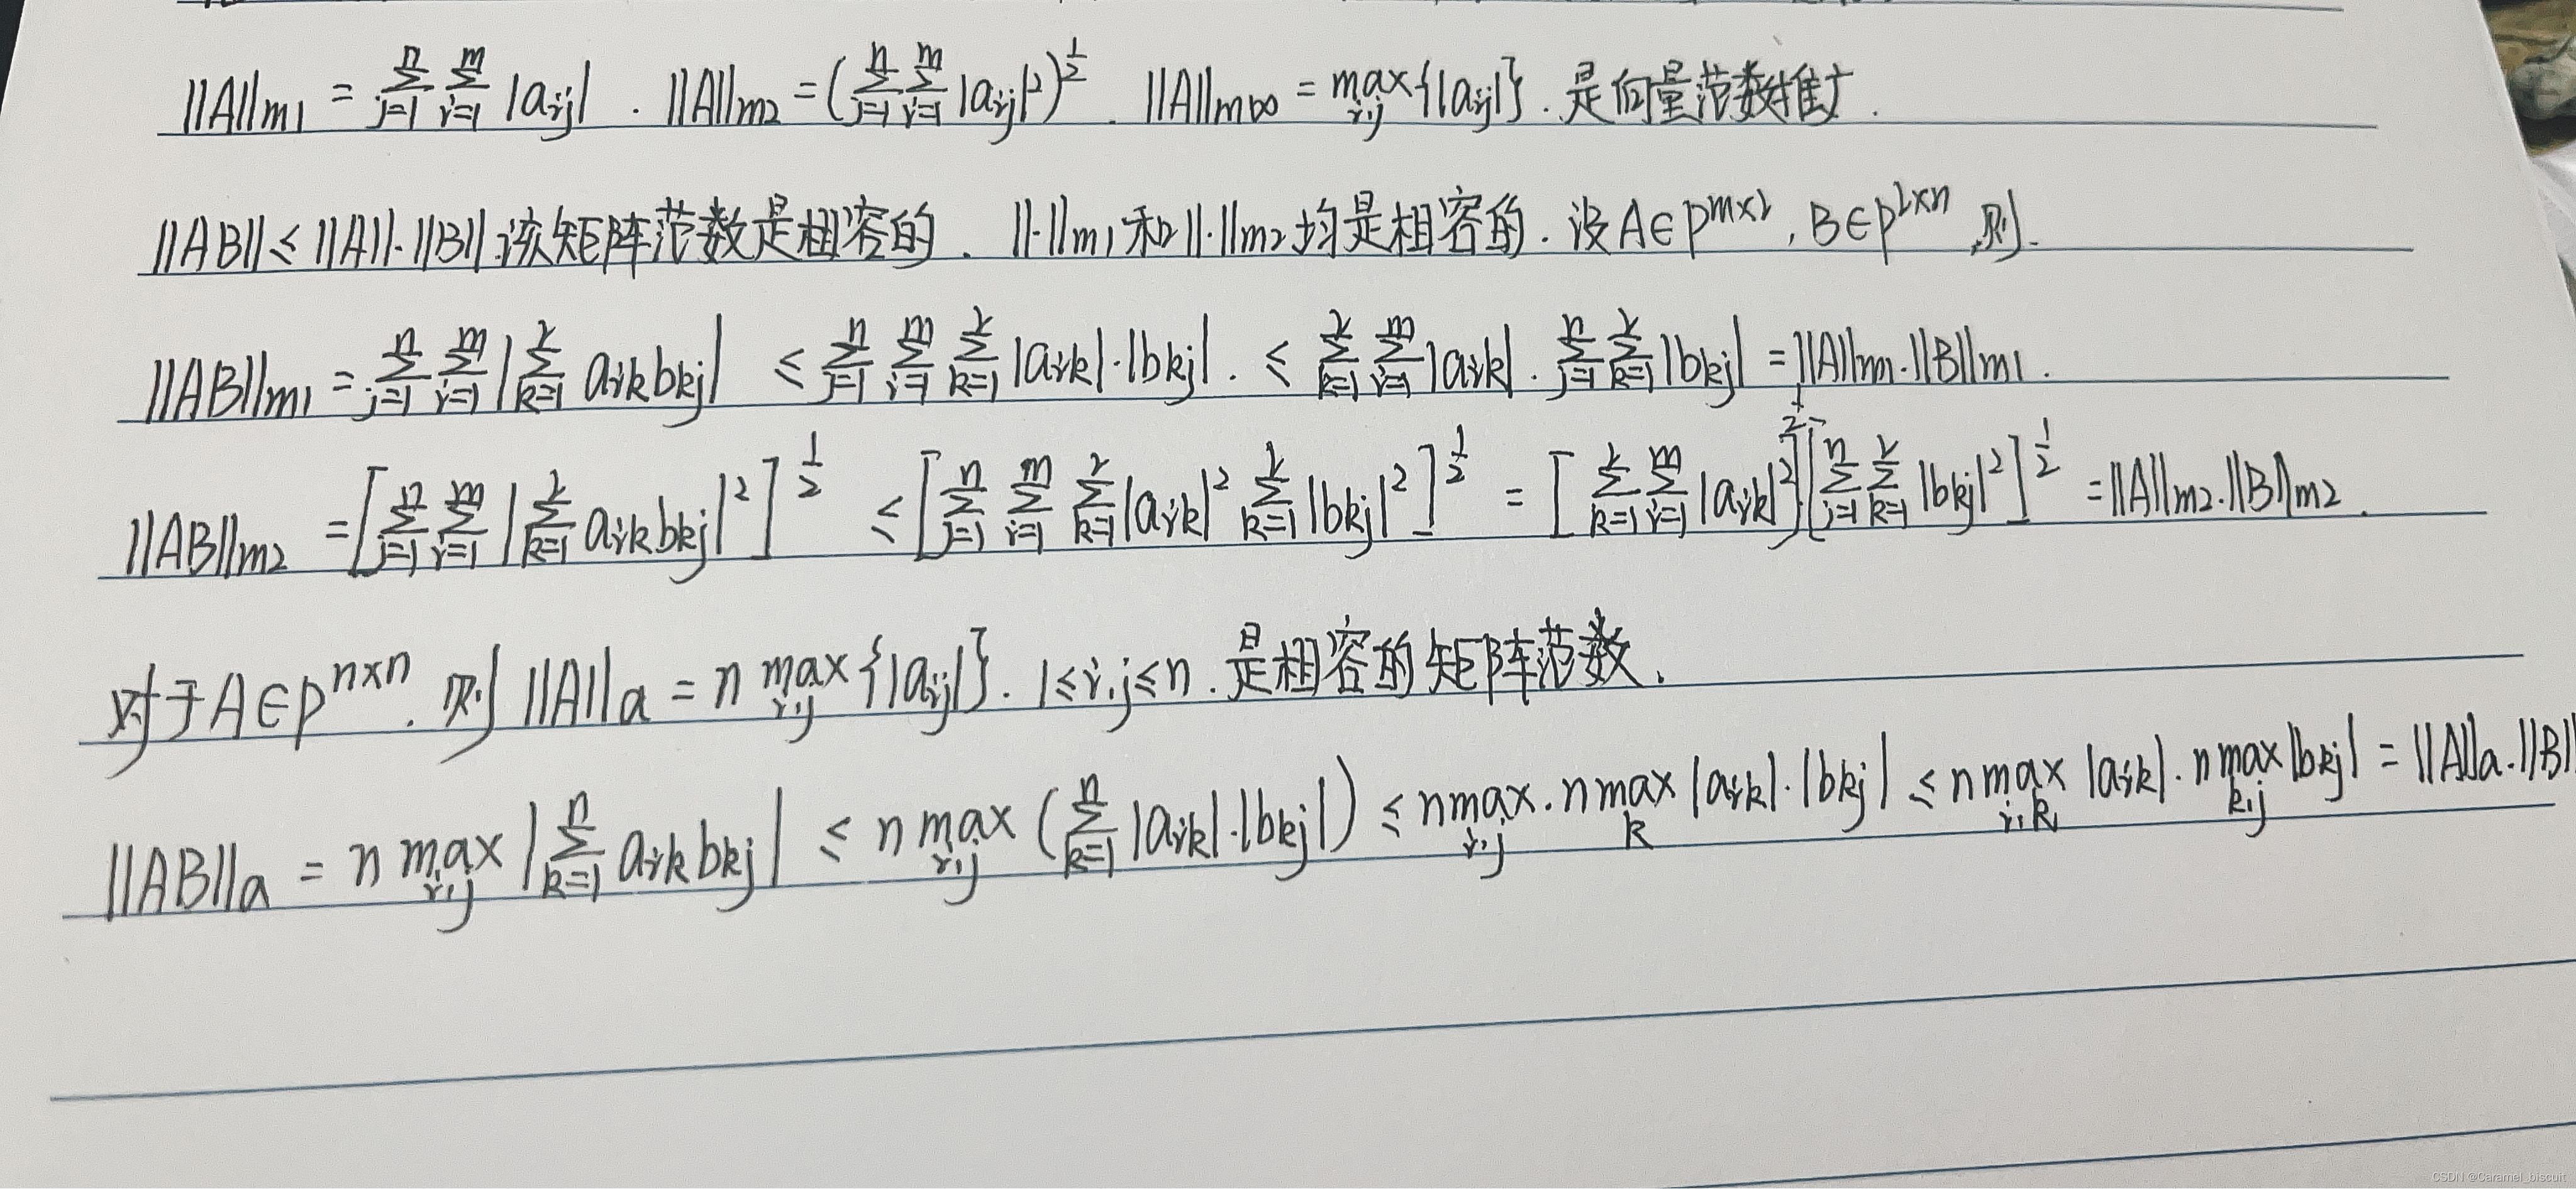 ||A||m1 = \sum_{j=1}^{n} \sum_{i=1}^{m} |aij| . ||A||m2 = (\sum_{j=1}^{n} \sum_{i=1}^{m} |aij|²)^{1/2} . ||A||m∞ = max_{i,j}{|aij|} . 是向量范数推广 .
||AB|| ≤ ||A||·||B|| 该矩阵范数是相容的 . ||·||m1 和 ||·||m2 均是相容的 . 设 A∈P^{m×r} , B∈P^{r×n} , 则 .
||AB||m1 = \sum_{j=1}^{n} \sum_{i=1}^{m} |\sum_{k=1}^{r} aik bkj| ≤ \sum_{j=1}^{n} \sum_{i=1}^{m} \sum_{k=1}^{r} |aik|·|bkj| . ≤ \sum_{k=1}^{r} \sum_{i=1}^{m} |aik| . \sum_{j=1}^{n} \sum_{k=1}^{r} |bkj| = ||A||m1.||B||m1 .
||AB||m2 = [\sum_{j=1}^{n} \sum_{i=1}^{m} |\sum_{k=1}^{r} aik bkj|²]^{1/2} ≤ [\sum_{j=1}^{n} \sum_{i=1}^{m} \sum_{k=1}^{r} |aik|² \sum_{k=1}^{r} |bkj|²]^{1/2} = [\sum_{k=1}^{r} \sum_{i=1}^{m} |aik|²]^{1/2} [\sum_{j=1}^{n} \sum_{k=1}^{r} |bkj|²]^{1/2} = ||A||m2.||B||m2 .
对于 A∈P^{n×n} . 则 ||A||a = n max_{i,j}{|aij|} . 1≤i,j≤n . 是相容的矩阵范数 .
||AB||a = n max_{i,j} |\sum_{k=1}^{n} aik bkj| ≤ n max_{i,j} (\sum_{k=1}^{n} |aik|·|bkj|) ≤ n max_{i,j} . n max_{k} |aik|·|bkj| ≤ n max_{i,k} |aik| . n max_{k,j} |bkj| = ||A||a.||B||
CSDN @Caramel_biscuit